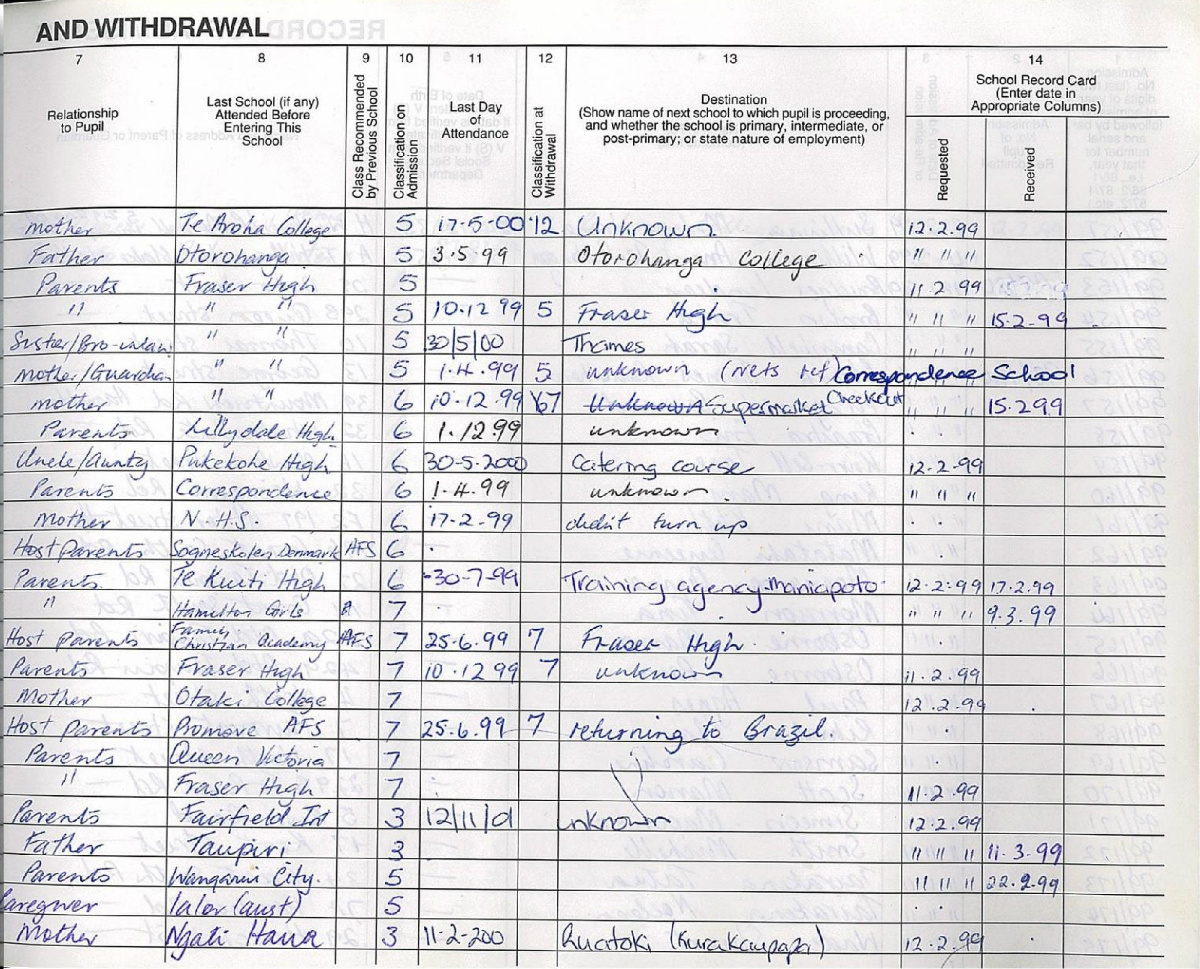 AND WITHDRAWAL
7 8 9 10 11 12 13 14
Relationship to Pupil
Last School (if any) Attended Before Entering This School
Class Recommended by Previous School
Classification on Admission
Last Day of Attendance
Classification at Withdrawal
Destination
(Show name of next school to which pupil is proceeding, and whether the school is primary, intermediate, or post-primary; or state nature of employment)
School Record Card
(Enter date in Appropriate Columns)
Requested
Received
mother Te Aroha College 5 17-5-00 12 Unknown 12.2.99
Father Otorohanga 5 3.5.99 Otorohanga College " " "
Parents Fraser High 5 11.2.99
" " " 5 10.12 99 5 Fraser High " " " 15.2.99
Sister/Bro-inlaw " " 5 30/5/00 Thames " " "
Mother/Guardian " " 5 1.4.99 5 unknown (nets ref) Correspondence School
mother " " 6 10.12.99 67 Unknown Supermarket Checkout " " " 15.2.99
Parents Lillydale High 6 1.12.99 unknown
Uncle/Aunty Pukekohe High 6 30-5-2000 Catering course 12-2-99
Parents Correspondence 6 1.4.99 unknown " " "
Mother N.H.S. 6 17-2-99 didn't turn up
Host Parents Sogneskolen Denmark AFS 6
Parents Te Kuiti High 6 -30-7-99 Training agency-Maniapoto 12.2.99 17.2.99
" Hamilton Girls 7 " " " 9.3.99
Host Parents Family Christian Academy AFS 7 25.6.99 7 Fraser High
Parents Fraser High 7 10.12 99 7 unknown 11.2.99
Mother Otaki College 7 12.2.99
Host Parents Promove AFS 7 25.6.99 7 returning to Brazil.
Parents Queen Victoria 7
" Fraser High 7 11.2.99
Parents Fairfield Int 3 12/11/01 unknown 12.2.99
Father Taupiri 3 " " " 11.3.99
Parents Wanganui City. 5 " " " 22.2.99
Caregiver Lalor (aust) 5
Mother Ngati Haua 3 11-2-200 Ruatoki (Kurakaupapa) 12.2.99